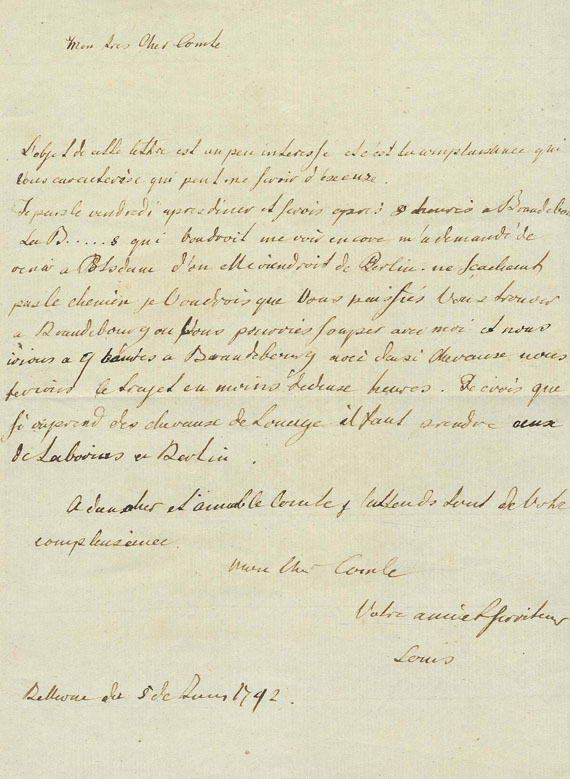 Mon tres Cher Comte
L'objet de cette lettre est un peu interesse et c'est la complaisance qui
vous caracterise qui peut me servir d'excuse.
Je pars le vendredi apres diner et serois apres 8 heures a Brandebou
La B.....s qui voudroit me voir encore m'a demandé de
venir a Potsdam d'on elle viendroit de Berlin. ne sçachant
pas le chemin je voudrois que vous puissiés vous trouver
a Brandebourg ou vous pouvriés souper avec moi et nous
irions a 9 heures a Brandebourg avec chevause nous
ferions le trajet en moins de deuse heures. Je crois que
si on prend des chevause de Louage il faut prendre ceux
de a Berlin.
Adieu cher et aimable Comte j'attends tout de votre
complaisance
mon cher Comte
Votre ami et serviteur
Louis
du 5 de 1792.